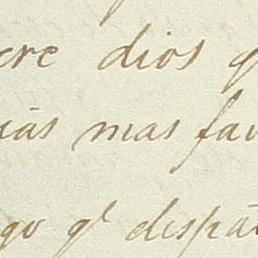 ere dios q
cias mas fav
go q.^e despa